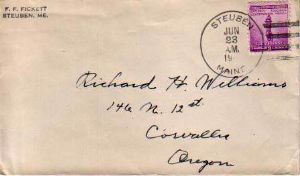 F. F. FICKETT
STEUBEN, ME.
STEUBEN
JUN
23
A.M.
MAINE
Richard H. Williams
146 N. 12st
Corvallis
Oregon